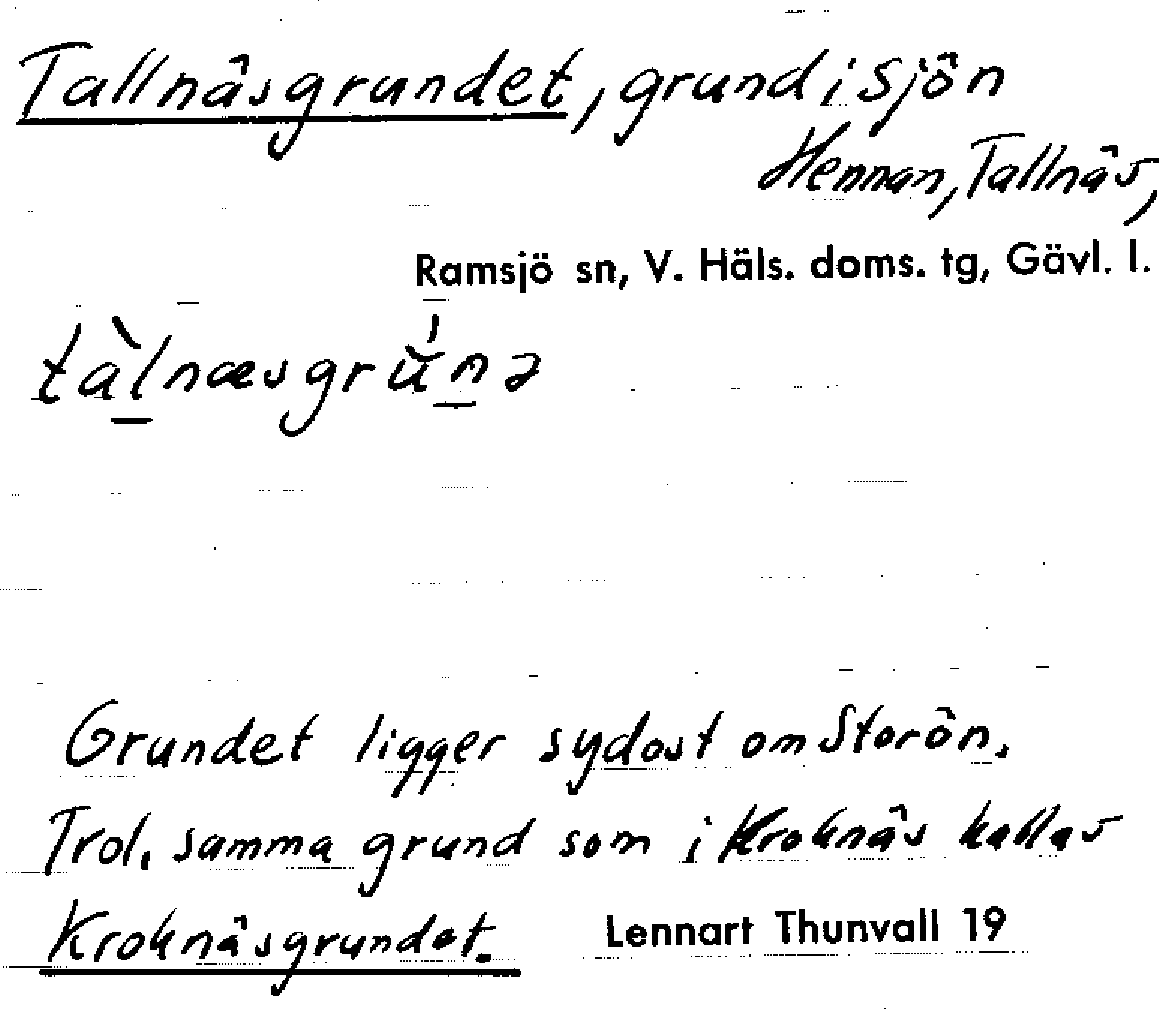 Tallnäsgrundet, grund i sjön
Hennan, Tallnäs,
Ramsjö sn, V. Häls. doms. tg, Gävl. l.
tàlnæsgrúnə
Grundet ligger sydost om Storön.
Trol. samma grund som i Kroknäs kallas
Kroknäsgrundet. Lennart Thunvall 19